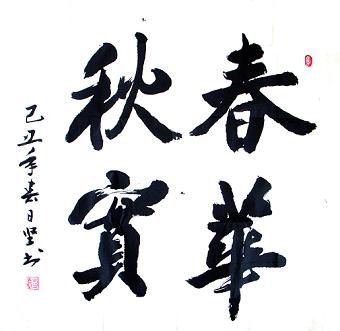 春華
秋實
己丑年春日坚书